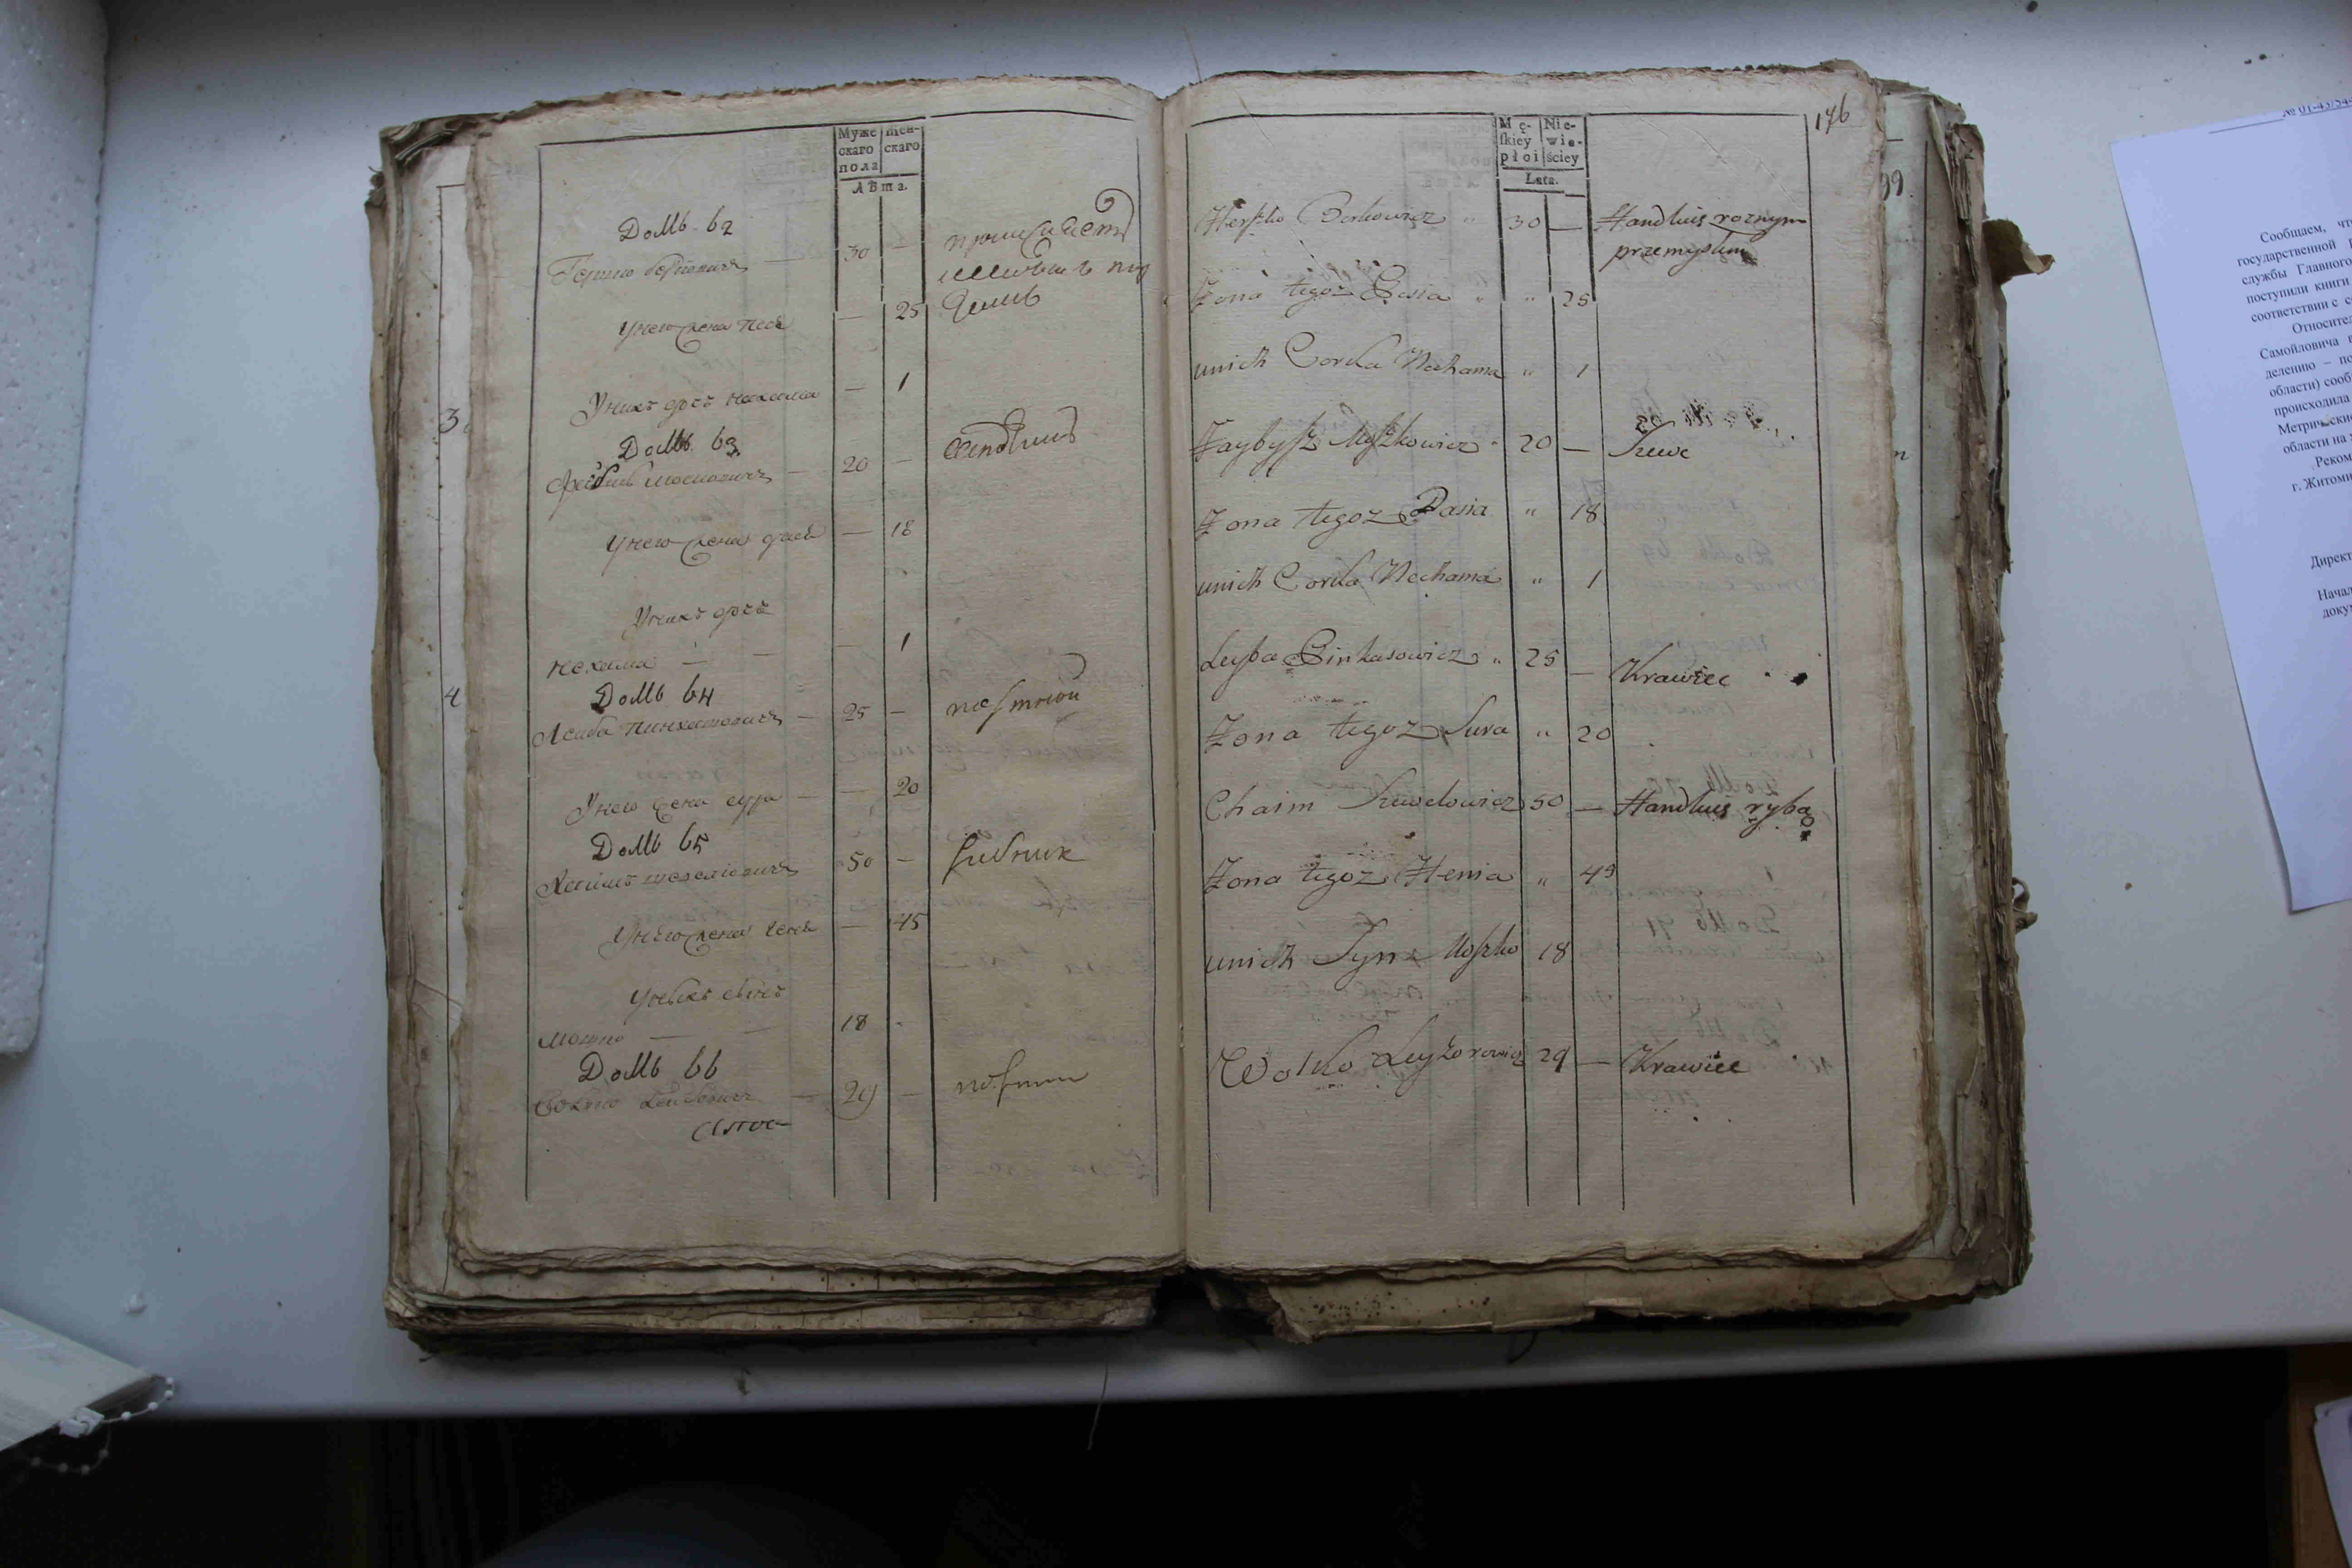 Муже
скаго
пола
жен-
скаго
лѣта.
Домъ 62
Гершко Берковичъ — 30 —
У него жена Песя — 25
У нихъ дочь Нехама — 1
Домъ 63
Фейбишъ Мошковичъ — 20 —
У него жена Дася — 18
У нихъ дочь
Нехама — — — 1
Домъ 64
Лейба Пинхасовичъ — 25 — портной
У него жена Сура — — 20
Домъ 65
Хаимъ — 50 — рибникъ
У него жена Геня — 45
У нихъ сынъ
Мошко — — 18
Домъ 66
Волко — 29 —
176
Mę-
ſkiey
płoi
Nie-
wie-
ściey
Lata.
Herszko Berkowicz " 30 — Handluie roznym
przemysłem
Zona tegoz Pesia " " 25
unich Corka Nechama " 1
Faybysz Moszkowicz " 20 — Szewc
Zona tegoz Dasia " 18
unich Corka Nechama " 1
Leyba Pinkasowicz " 25 — Krawiec
Zona tegoz Sura " 20
Chaim Szewelowicz 50 — Handluie rybą
Zona tegoz Henia " 45
unich Syn Moszko 18
Wolko Leyzorowicz 29 — Krawiec
3
4
99.
№ 01-43/54
Сообщаем, чт
государственной
службы Главного
поступили книги
соответствии с
Относител
Самойловича
делению – по
области) сооб
происходила
Метрические
области на
Реком
г. Житоми
Директ
Начал
доку